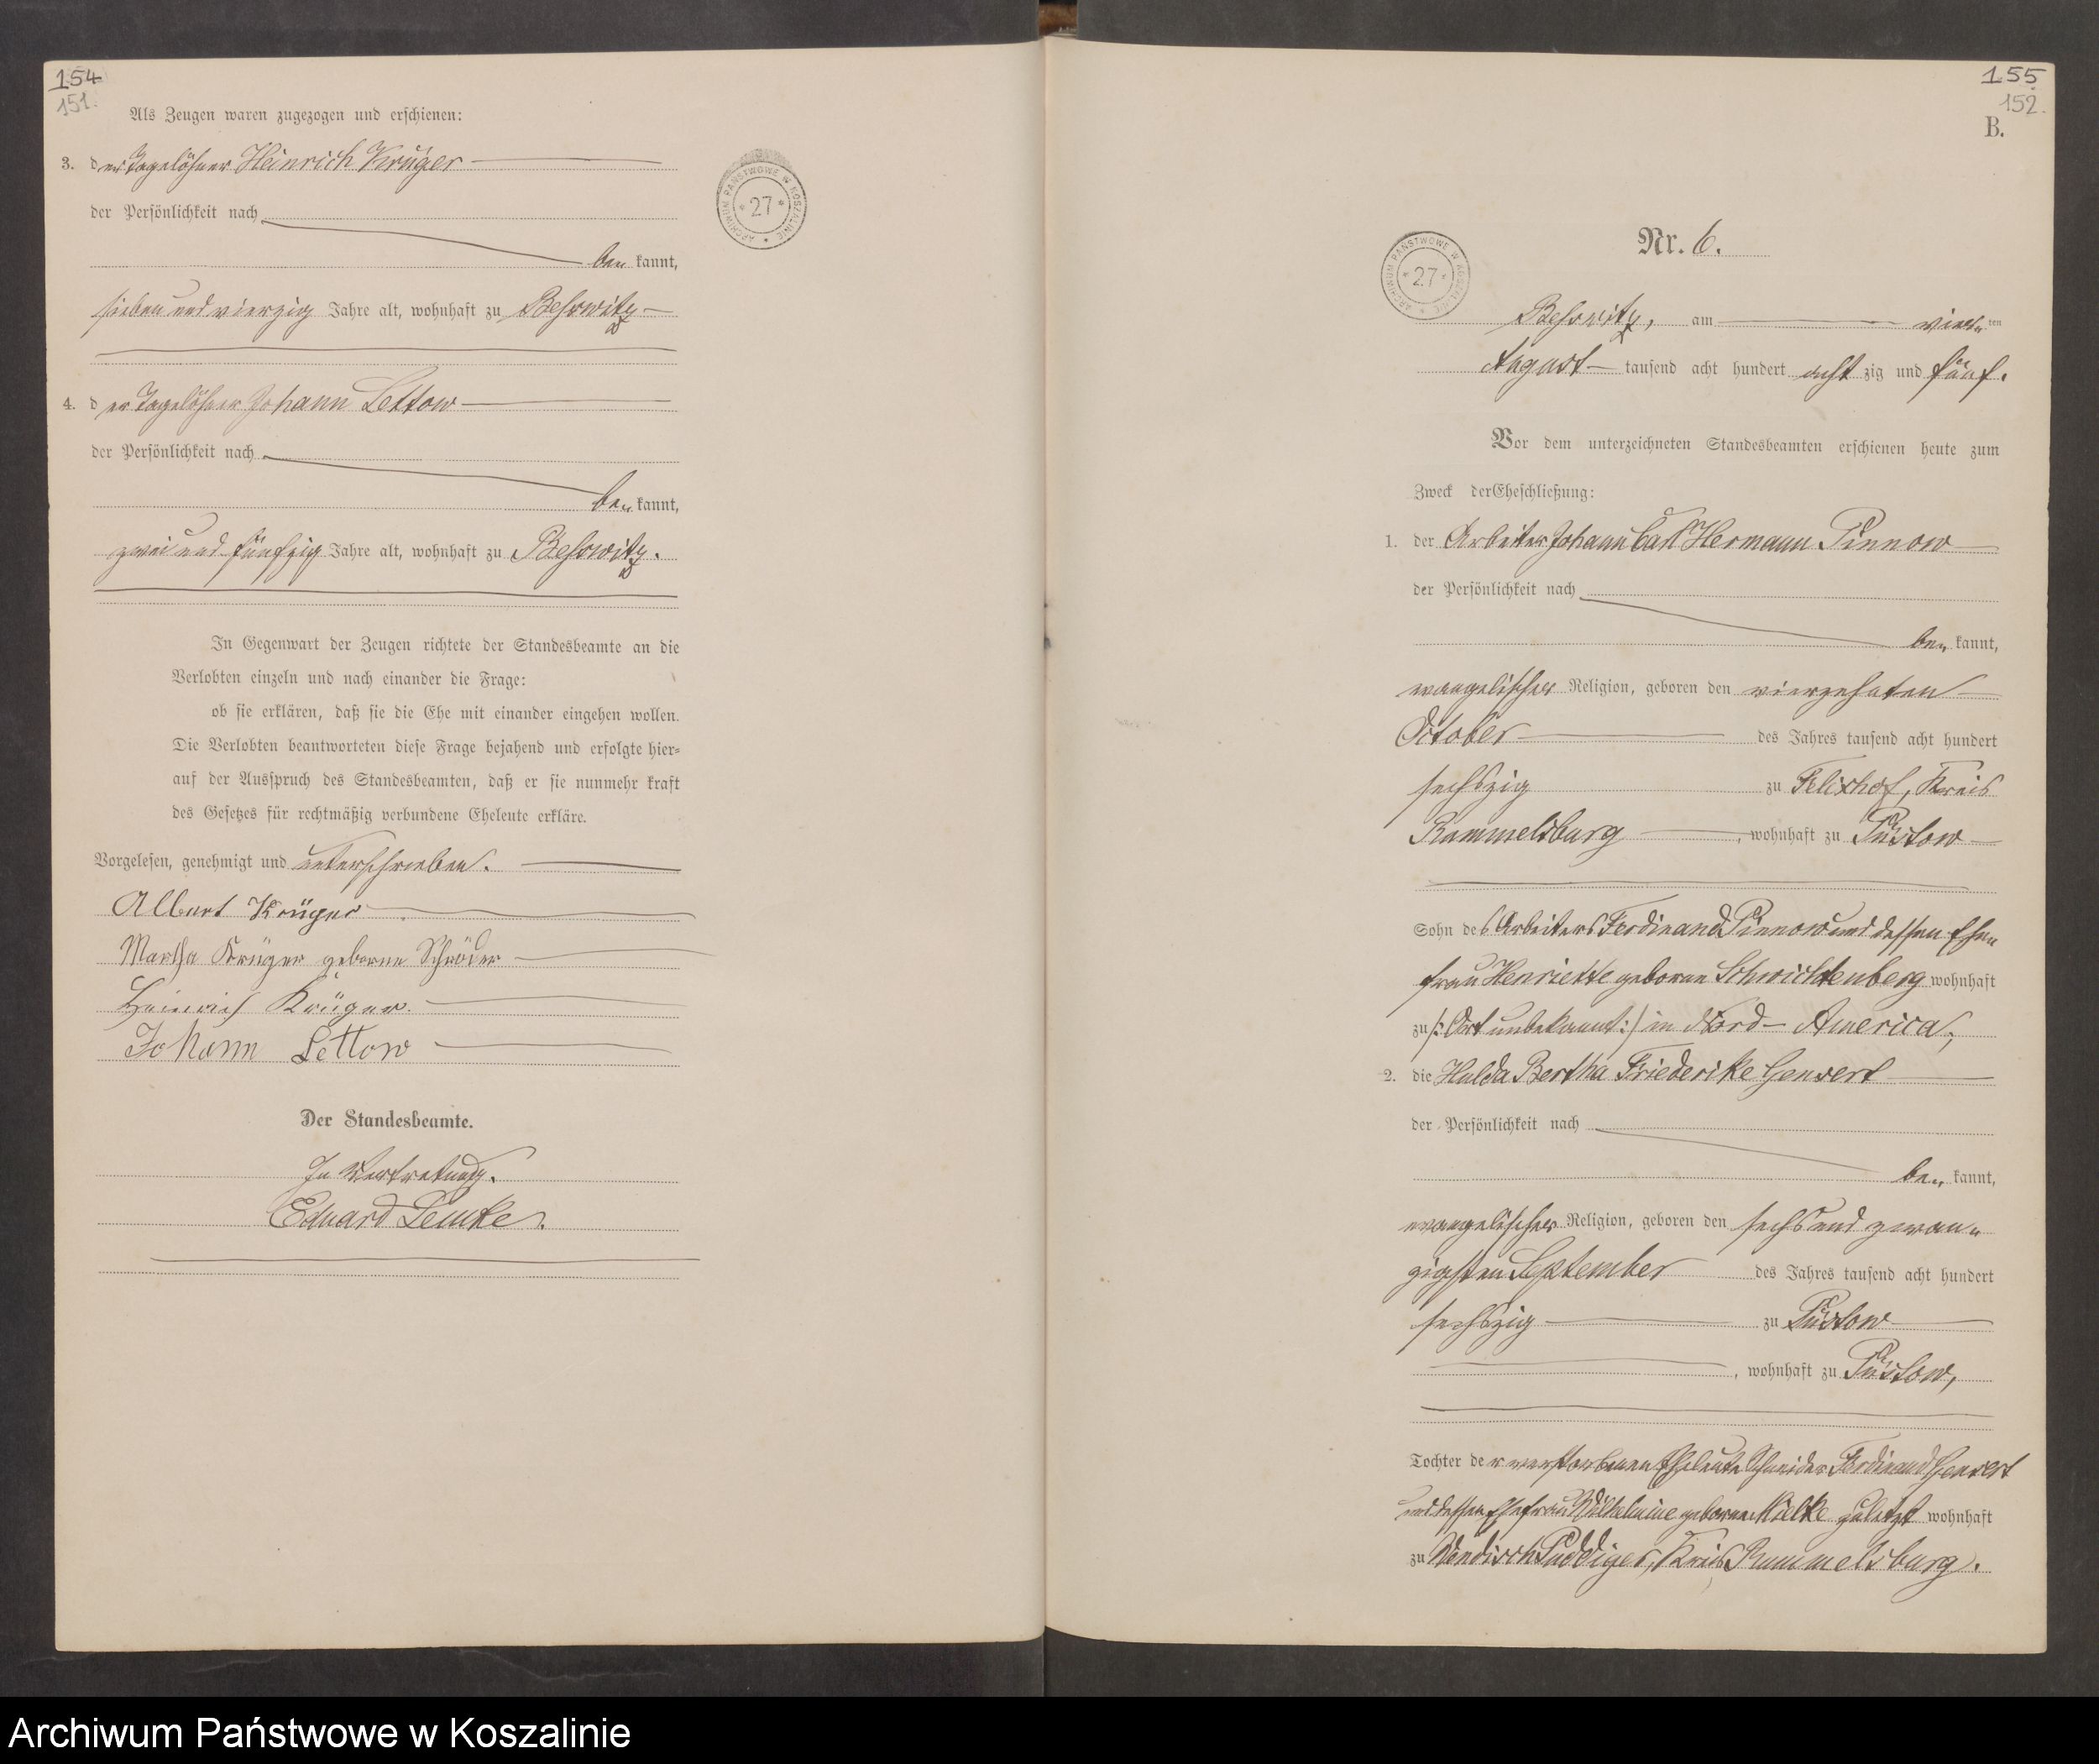 154
151.
Als Zeugen waren zugezogen und erschienen:
3. der Tagelöhner Heinrich Krüger
der Persönlichkeit nach
bekannt,
sieben und vierzig Jahre alt, wohnhaft zu Beßwitz
4. der Tagelöhner Johann Lettow
der Persönlichkeit nach
bekannt,
zwei und fünfzig Jahre alt, wohnhaft zu Beßwitz.
In Gegenwart der Zeugen richtete der Standesbeamte an die
Verlobten einzeln und nach einander die Frage:
ob sie erklären, daß sie die Ehe mit einander eingehen wollen.
Die Verlobten beantworteten diese Frage bejahend und erfolgte hier-
auf der Ausspruch des Standesbeamten, daß er sie nunmehr kraft
des Gesetzes für rechtmäßig verbundene Eheleute erkläre.
Vorgelesen, genehmigt und unterschrieben.
Albert Krüger
Martha Krüger geborene Schröder
Heinrich Krüger.
Johann Lettow
Der Standesbeamte.
In Vertretung.
Eduard Lemke.
ARCHIWUM PAŃSTWOWE W KOSZALINIE
* 27 *
155
152.
B.
ARCHIWUM PAŃSTWOWE W KOSZALINIE
* 27 *
Nr. 6.
Beßwitz, am vier-ten
August tausend acht hundert achtzig und fünf.
Vor dem unterzeichneten Standesbeamten erschienen heute zum
Zweck der Eheschließung:
1. der Arbeiter Johann Carl Hermann Pinnow
der Persönlichkeit nach
bekannt,
evangelischer Religion, geboren den vierzehnten
October des Jahres tausend acht hundert
sechszig zu Felixhof, Kreis
Rummelsburg, wohnhaft zu Püstow
Sohn des Arbeiters Ferdinand Pinnow und dessen Ehe-
frau Henriette geborene Schwichtenberg wohnhaft
zu /: Ort unbekannt :/ in Nord-America;
2. die Hulda Bertha Friederike Genvert
der Persönlichkeit nach
bekannt,
evangelischer Religion, geboren den sechs und zwan-
zigsten September des Jahres tausend acht hundert
sechszig zu Püstow
, wohnhaft zu Püstow,
Tochter der verstorbenen Eheleute Schneider Ferdinand Genvert
und dessen Ehefrau Wilhelmine geborene Mielke zuletzt wohnhaft
zu Wendisch Puddiger, Kreis Rummelsburg.
Archiwum Państwowe w Koszalinie